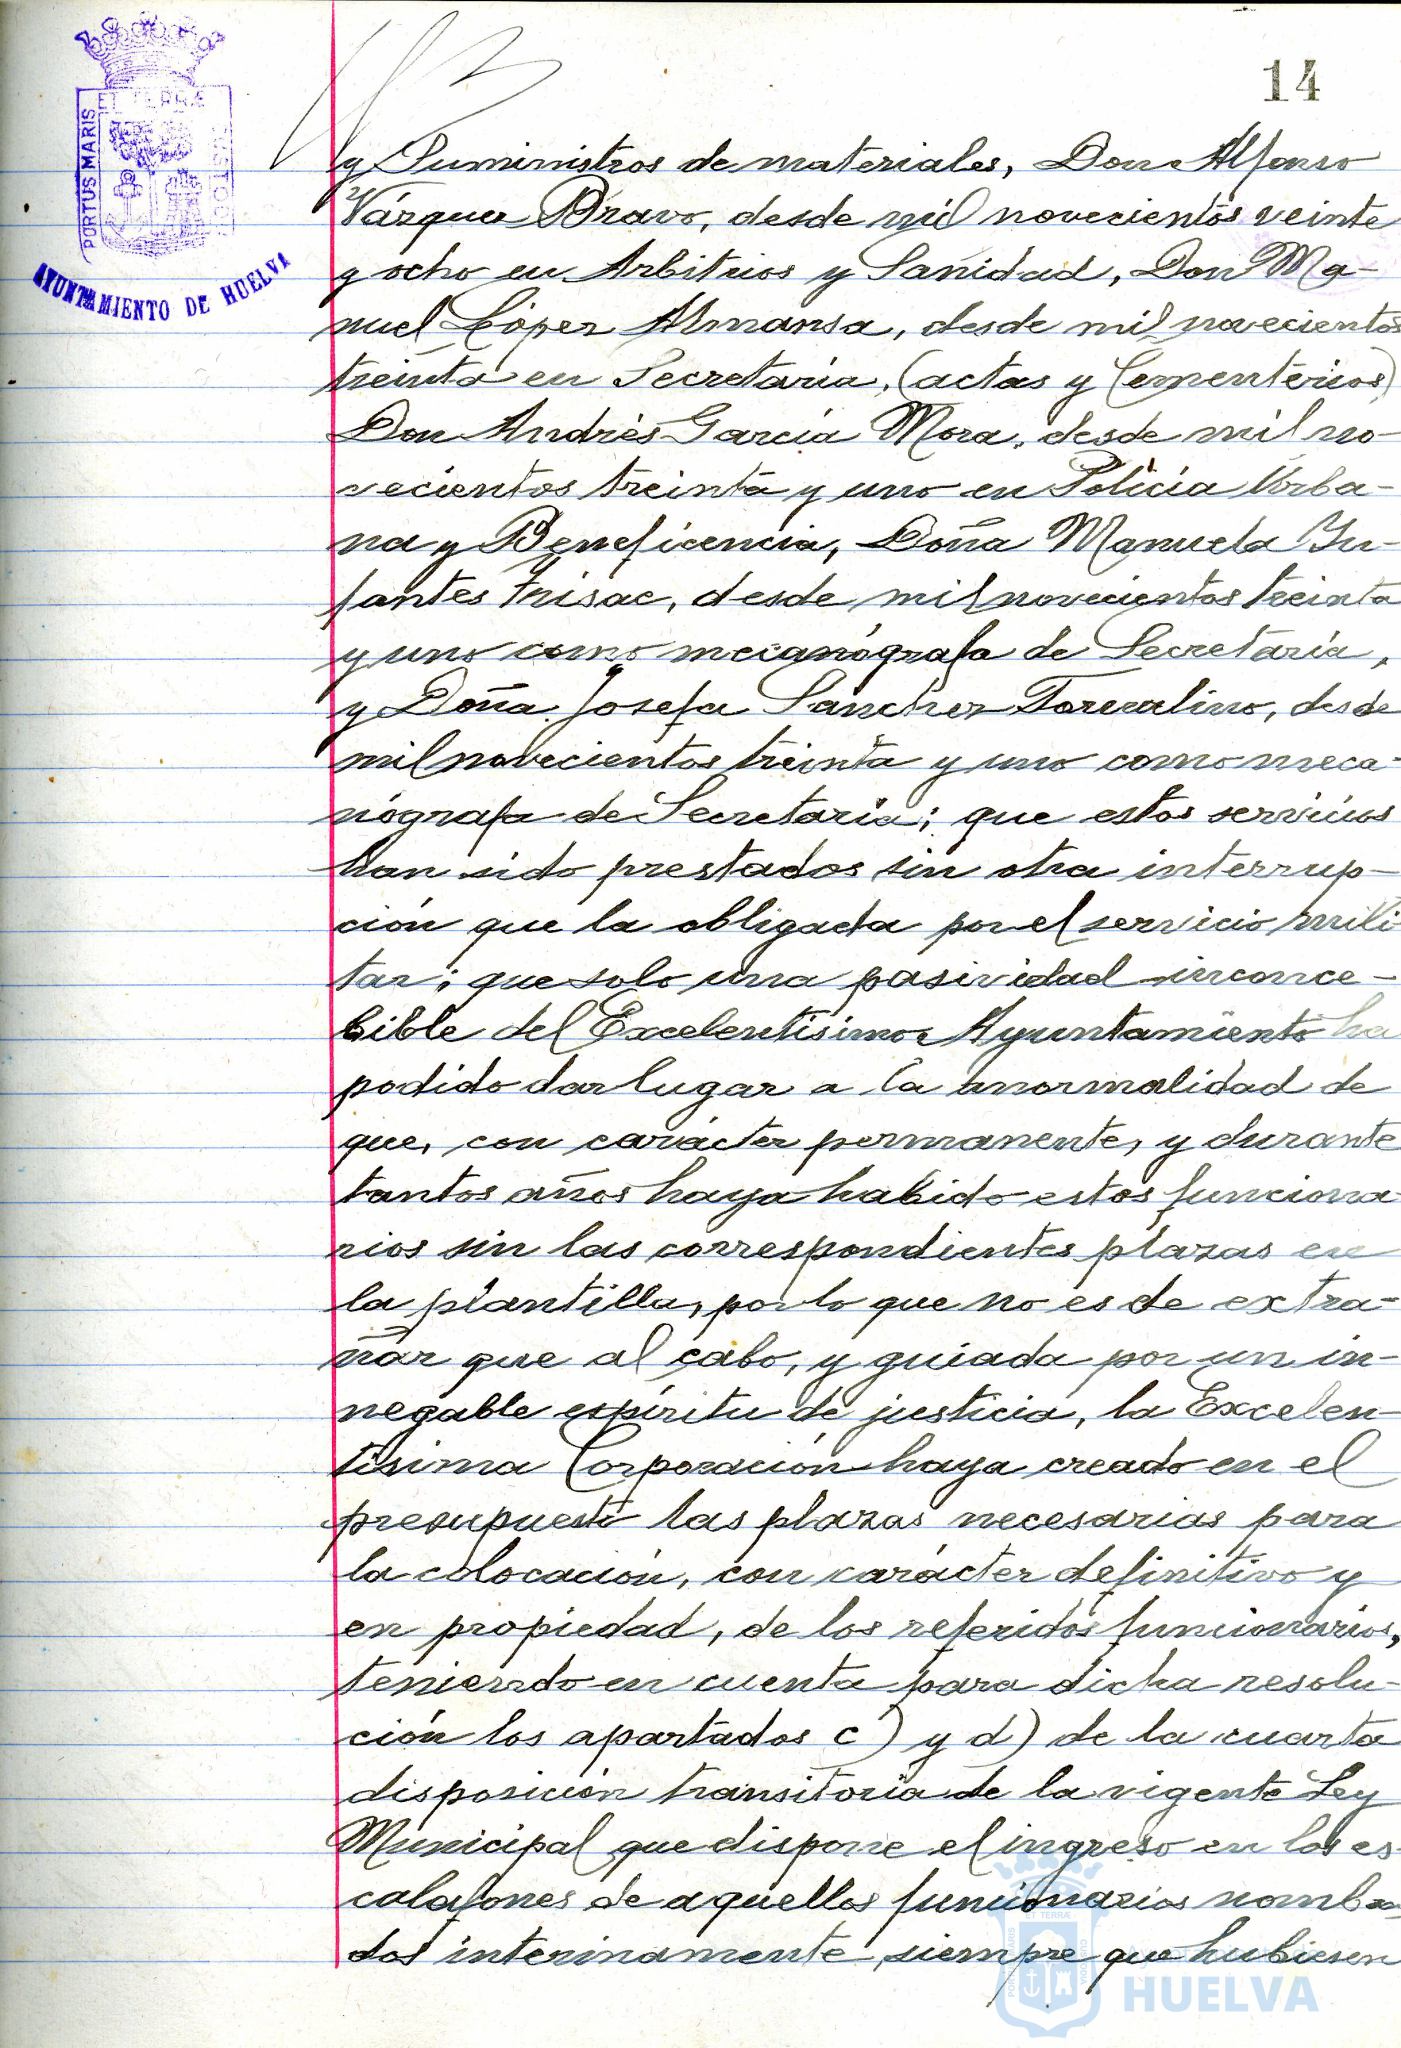 14
PORTUS MARIS
ET TERRÆ
CUSTODIA
AYUNTAMIENTO DE HUELVA
y Suministros de materiales, Don Alfonso
Vázquez Bravo, desde mil novecientos veinte
y ocho en Arbitrios y Sanidad, Don Ma-
nuel López Almansa, desde mil novecientos
treinta en Secretaría, (actas y Cementerios)
Don Andrés García Mora, desde mil no-
vecientos treinta y uno en Policía Urba-
na y Beneficencia, Doña Manuela In-
fantes Frisac, desde mil novecientos treinta
y uno como mecanógrafa de Secretaría,
y Doña Josefa Sánchez, desde
mil novecientos treinta y uno como meca-
nógrafa de Secretaría; que estos servicios
han sido prestados sin otra interrup-
ción que la obligada por el servicio mili-
tar; que solo una pasividad inconce-
bible del Excelentísimo Ayuntamiento ha
podido dar lugar a la anormalidad de
que, con carácter permanente, y durante
tantos años haya habido estos funciona
rios sin las correspondientes plazas en
la plantilla, por lo que no es de extra-
ñar que al cabo, y guiada por un in-
negable espíritu de justicia, la Excelen-
tísima Corporación haya creado en el
presupuesto las plazas necesarias para
la colocación, con carácter definitivo y
en propiedad, de los referidos funcionarios,
teniendo en cuenta para dicha resolu-
ción los apartados c) y d) de la cuarta
disposición transitoria de la vigente Ley
Municipal que dispone el ingreso en los es-
calafones de aquellos funcionarios nombra-
dos interinamente siempre que hubiesen
HUELVA